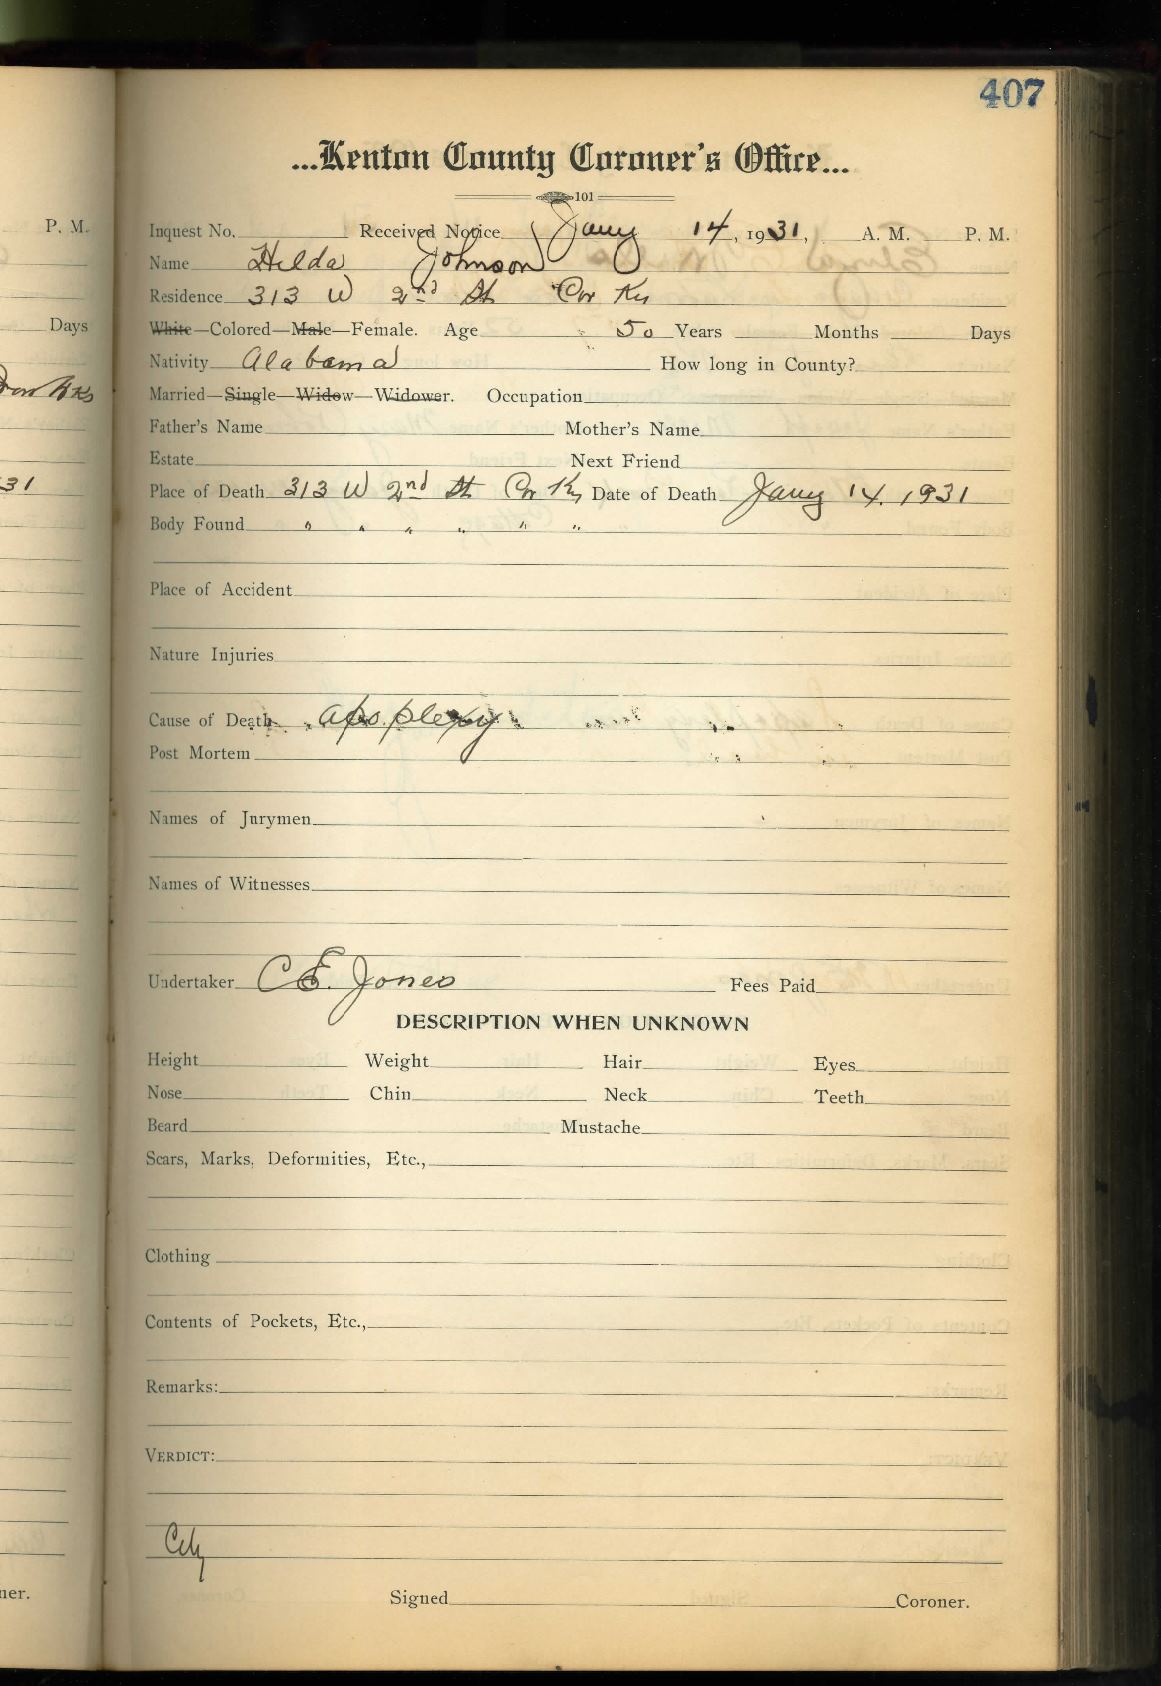 407
...Kenton County Coroner's Office...
101
P. M.
Inquest No. Received Notice Jany 14, 1931, A. M. P. M.
Name Hilda Johnson
Residence 313 W 2nd St Cov Ky
Days
White—Colored—Male—Female. Age 50 Years Months Days
Nativity Alabama How long in County?
Married—Single—Widow—Widower. Occupation
Father's Name Mother's Name
Estate Next Friend
31
Place of Death 313 W 2nd St Cov Ky Date of Death Jany 14. 1931
Body Found " " " " " "
Place of Accident
Nature Injuries
Cause of Death Apoplexy
Post Mortem
Names of Jurymen
Names of Witnesses
Undertaker C E. Jones Fees Paid
DESCRIPTION WHEN UNKNOWN
Height Weight Hair Eyes
Nose Chin Neck Teeth
Beard Mustache
Scars, Marks, Deformities, Etc.,
Clothing
Contents of Pockets, Etc.,
Remarks:
VERDICT:
City
ner.
Signed Coroner.